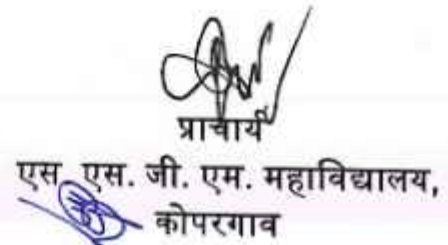 प्राचार्य
एस. एस. जी. एम. महाविद्यालय,
कोपरगाव